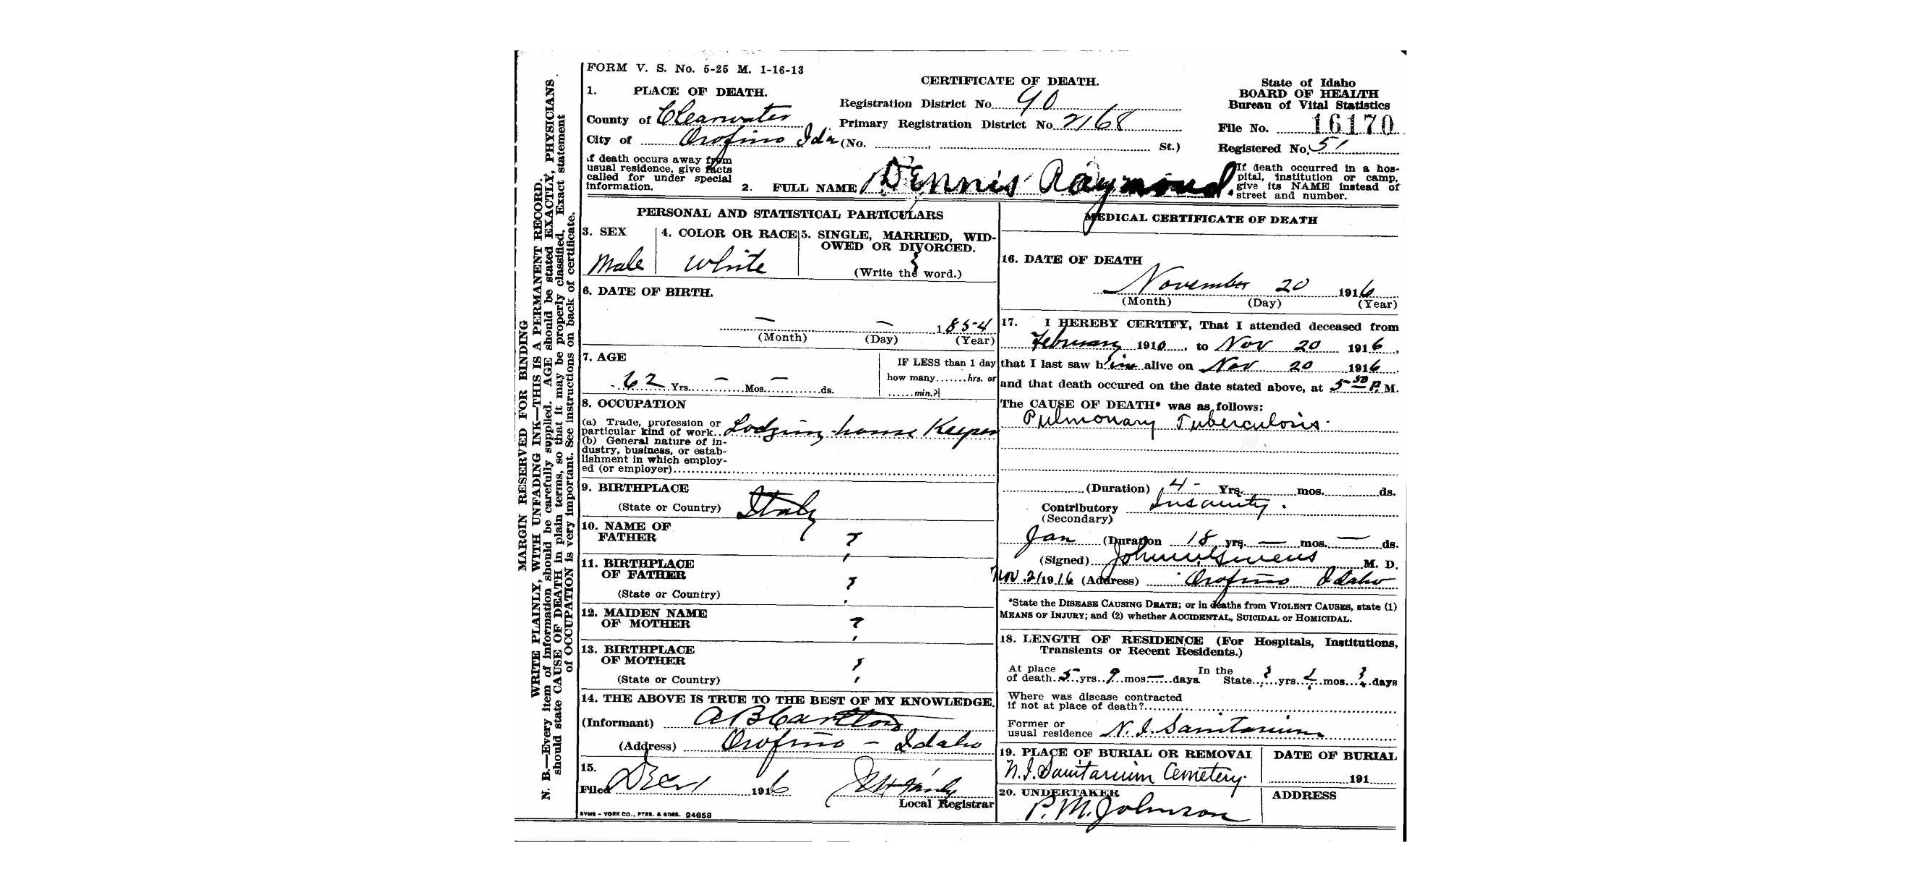 FORM V. S. No. 5-25 M. 1-16-13
CERTIFICATE OF DEATH.
State of Idaho
BOARD OF HEALTH
Bureau of Vital Statistics
File No. 16170
Registered No. 51
1. PLACE OF DEATH.
County of Clearwater
City of Orofino Ida (No. St.)
Registration District No. 90
Primary Registration District No. 2168
If death occurs away from
usual residence, give facts
called for under special
information.
2. FULL NAME Dennis Raymond.
If death occurred in a hos-
pital, institution or camp,
give its NAME instead of
street and number.
MARGIN RESERVED FOR BINDING
WRITE PLAINLY, WITH UNFADING INK—THIS IS A PERMANENT RECORD.
N. B.—Every item of information should be carefully supplied. AGE should be stated EXACTLY, PHYSICIANS
should state CAUSE OF DEATH in plain terms, so that it may be properly classified. Exact statement
of OCCUPATION is very important. See instructions on back of certificate.
PERSONAL AND STATISTICAL PARTICULARS
3. SEX
Male
4. COLOR OR RACE
White
5. SINGLE, MARRIED, WID-
OWED OR DIVORCED.
(Write the word.)
6. DATE OF BIRTH.
— — 1854
(Month) (Day) (Year)
7. AGE
62 Yrs. — Mos. — ds.
IF LESS than 1 day
how many.......hrs. or
......min.?
8. OCCUPATION
(a) Trade, profession or
particular kind of work.. Lodging house Keeper
(b) General nature of in-
dustry, business, or estab-
lishment in which employ-
ed (or employer)
9. BIRTHPLACE
(State or Country) Italy
10. NAME OF
FATHER ?
11. BIRTHPLACE
OF FATHER ?
(State or Country)
12. MAIDEN NAME
OF MOTHER ?
13. BIRTHPLACE
OF MOTHER ?
(State or Country)
14. THE ABOVE IS TRUE TO THE BEST OF MY KNOWLEDGE.
(Informant) A B Carlton
(Address) Orofino — Idaho
15.
Filed Dec 1 1916
Local Registrar
SYMS - YORK CO., PTRS. & BDRS. 24658
MEDICAL CERTIFICATE OF DEATH
16. DATE OF DEATH
November 20 1916
(Month) (Day) (Year)
17. I HEREBY CERTIFY, That I attended deceased from
February 1910, to Nov 20 1916,
that I last saw him alive on Nov 20 1916
and that death occured on the date stated above, at 5 50 P. M.
The CAUSE OF DEATH* was as follows:
Pulmonary Tuberculosis.
(Duration) 4 - Yrs. mos. ds.
Contributory Insanity.
(Secondary)
Jan (Duration 18 yrs. — mos. — ds.
(Signed) M. D.
Nov. 21 1916 (Address) Orofino Idaho
*State the DISEASE CAUSING DEATH; or in deaths from VIOLENT CAUSES, state (1)
MEANS OF INJURY; and (2) whether ACCIDENTAL, SUICIDAL or HOMICIDAL.
18. LENGTH OF RESIDENCE (For Hospitals, Institutions,
Transients or Recent Residents.)
At place
of death. 5 yrs. 9 mos — days
In the
State ? yrs. ? mos. ? days
Where was disease contracted
if not at place of death?
Former or
usual residence N. I. Sanitarium
19. PLACE OF BURIAL OR REMOVAL
N. I. Sanitarium Cemetery.
DATE OF BURIAL
191
20. UNDERTAKER
P. M. Johnson
ADDRESS